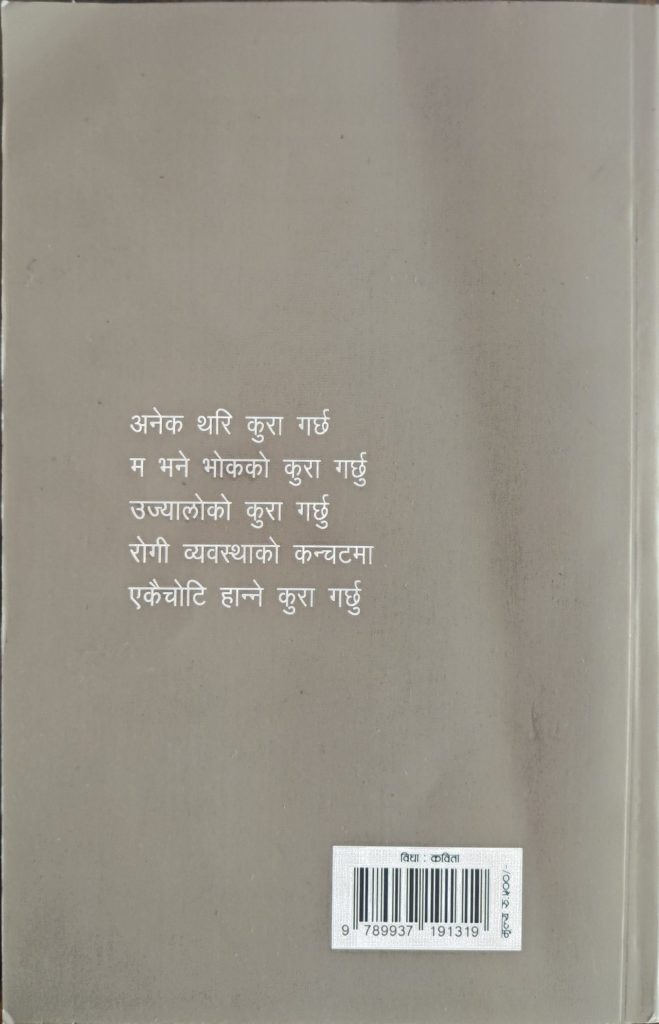 अनेक थरि कुरा गर्छ
म भने भोकको कुरा गर्छु
उज्यालोको कुरा गर्छु
रोगी व्यवस्थाको कन्चटमा
एकैचोटि हान्ने कुरा गर्छु
विधा : कविता
9 789937 191319
मूल्य रु.५००/-